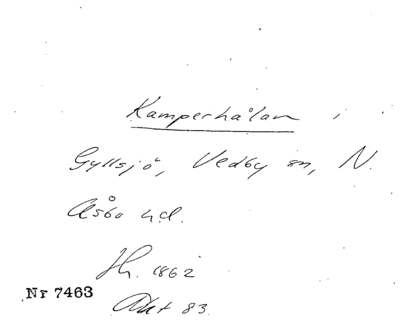 Kamperhålan i
Gyllsjö, Vedby sn, N.
Åsbo hd.
Jh. 1862
Nr 7463
Akt 83.